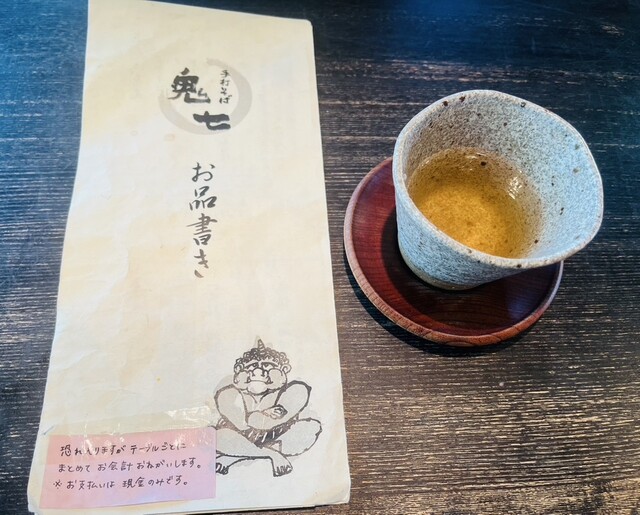 手打そば
鬼七
お品書き
恐れ入りますが テーブルごとに
まとめて お会計 おねがいします。
※ お支払いは 現金のみです。